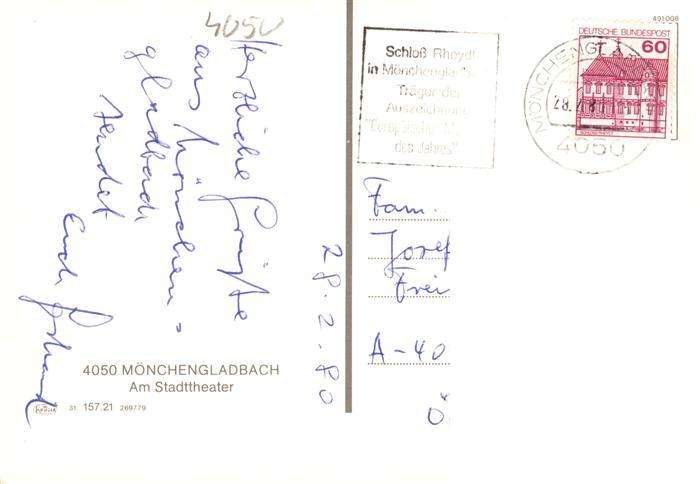 4050
Herzliche Grüße
aus Mönchen=
gladbach
sendet
Euch
28.2.80
4050 MÖNCHENGLADBACH
Am Stadttheater
31 157.21 269779
Schloß Rheydt
in Mönchengladbach
Träger der
Auszeichnung
"Europäisches
des Jahres"
MÖNCHENGLADBACH
4050
491008
DEUTSCHE BUNDESPOST
60
Fam.
Josef
Frei
A-40
Ö